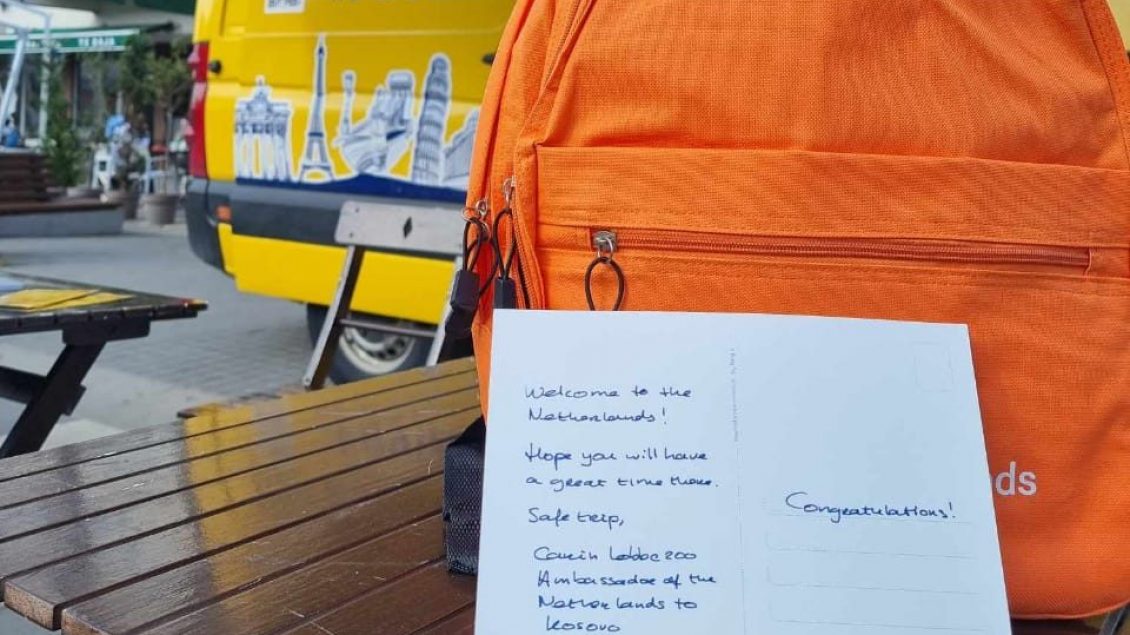 Welcome to the
Netherlands!
Hope you will have
a great time there.
Safe trip,
Carin Lobbezoo
Ambassador of the
Netherlands to
Kosovo
Congratulations!
ds